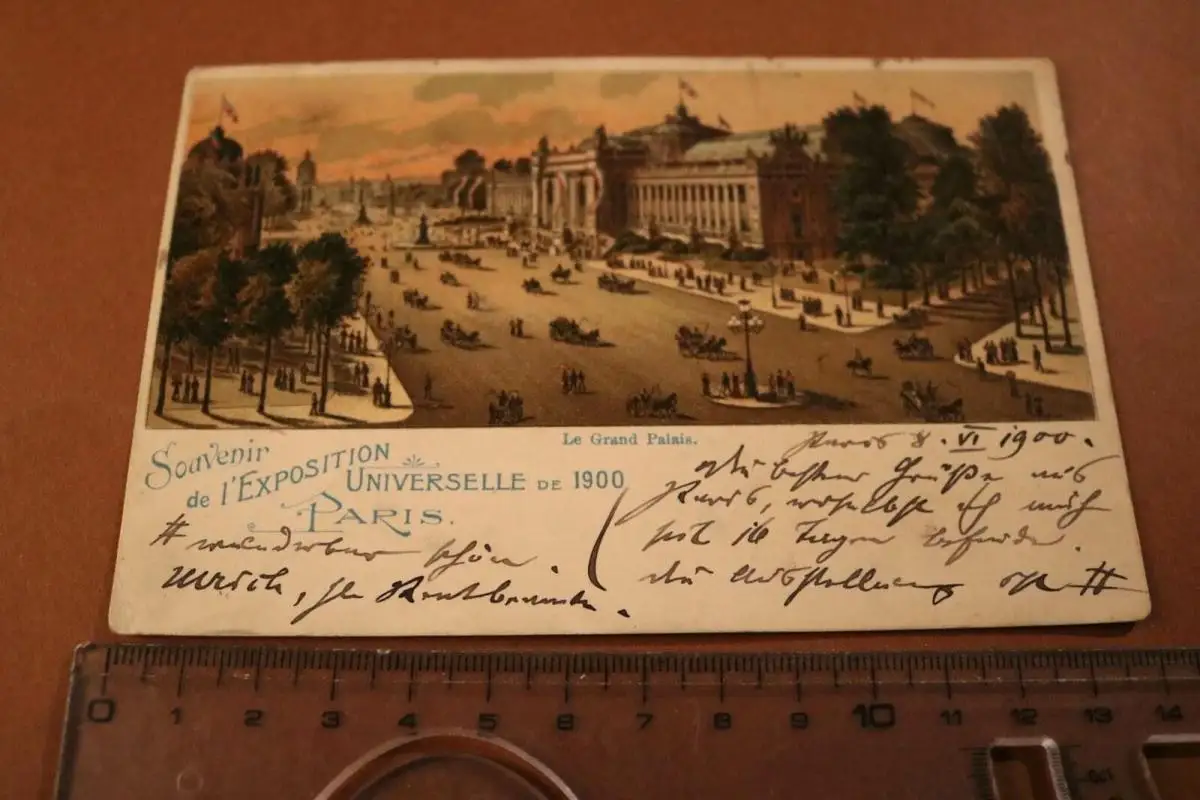 Le Grand Palais.
Souvenir
de l'EXPOSITION
UNIVERSELLE DE 1900
PARIS.
Paris 8. VI 1900.
Die besten Grüße aus
Paris, woselbst ich mich
seit 16 Tagen befinde.
Die Ausstellung ist #
# wunderbar schön.
Ulrich,
0 1 2 3 4 5 6 7 8 9 10 11 12 13 14